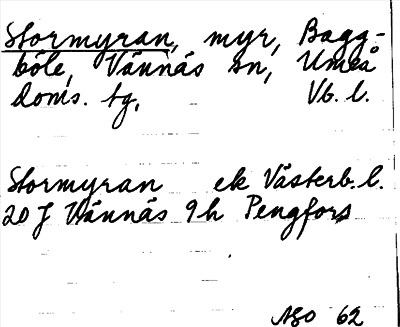 Stormyran, myr, Bagg-
böle, Vännäs sn, Umeå
doms. tg, Vb. l.
Stormyran ek Västerb. l.
20 J Vännäs 9h Pengfors
ASO 62